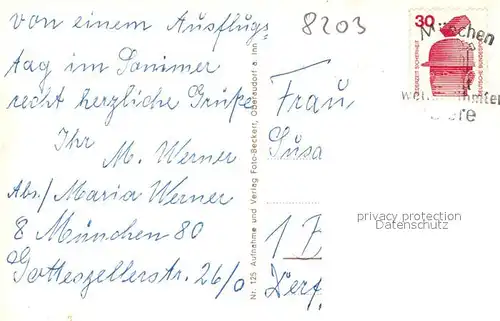 von einem Ausflugs-
tag im Sommer
recht herzliche Grüße
Ihr
M. Werner
Abs./Maria Werner
8 München 80
Gotteszellerstr. 26/0
Nr. 125 Aufnahme und Verlag Foto-Beckert, Oberaudorf a. Inn
8203
Frau
Susa
1
30
JEDERZEIT SICHERHEIT
DEUTSCHE BUNDESPOST
München
privacy protection
Datenschutz